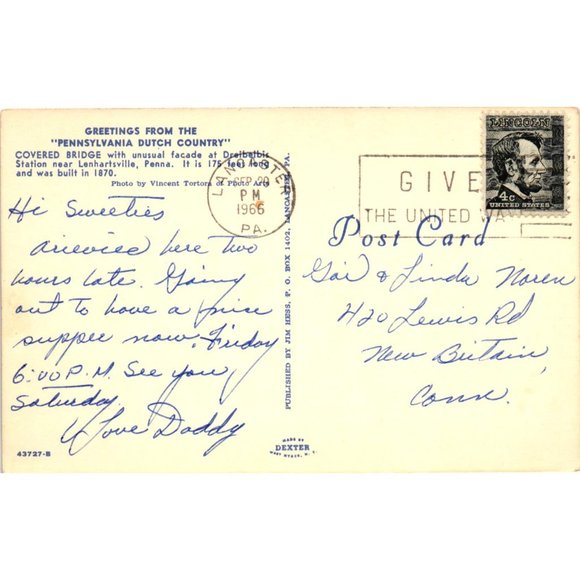 GREETINGS FROM THE
"PENNSYLVANIA DUTCH COUNTRY"
COVERED BRIDGE with unusual facade at Dreibelbis
Station near Lenhartsville, Penna. It is 175 feet long
and was built in 1870.
Photo by Vincent Tortora of Photo Arts
LANCASTER
SEP
PM
1966
PA.
GIVE
THE UNITED WA
LINCOLN
4c
UNITED STATES
Post Card
Hi Sweeties
Arrived here two
hours late. Going
out to have a nice
supper now. Friday
6:00 P.M. See you,
Saturday.
Love Daddy
& Linda Noren
420 Lewis Rd
New Britain,
Conn.
PUBLISHED BY JIM HESS, P. O. BOX 1402, LANCASTER, PA.
MADE BY
DEXTER
WEST NYACK, N. Y.
43727-B